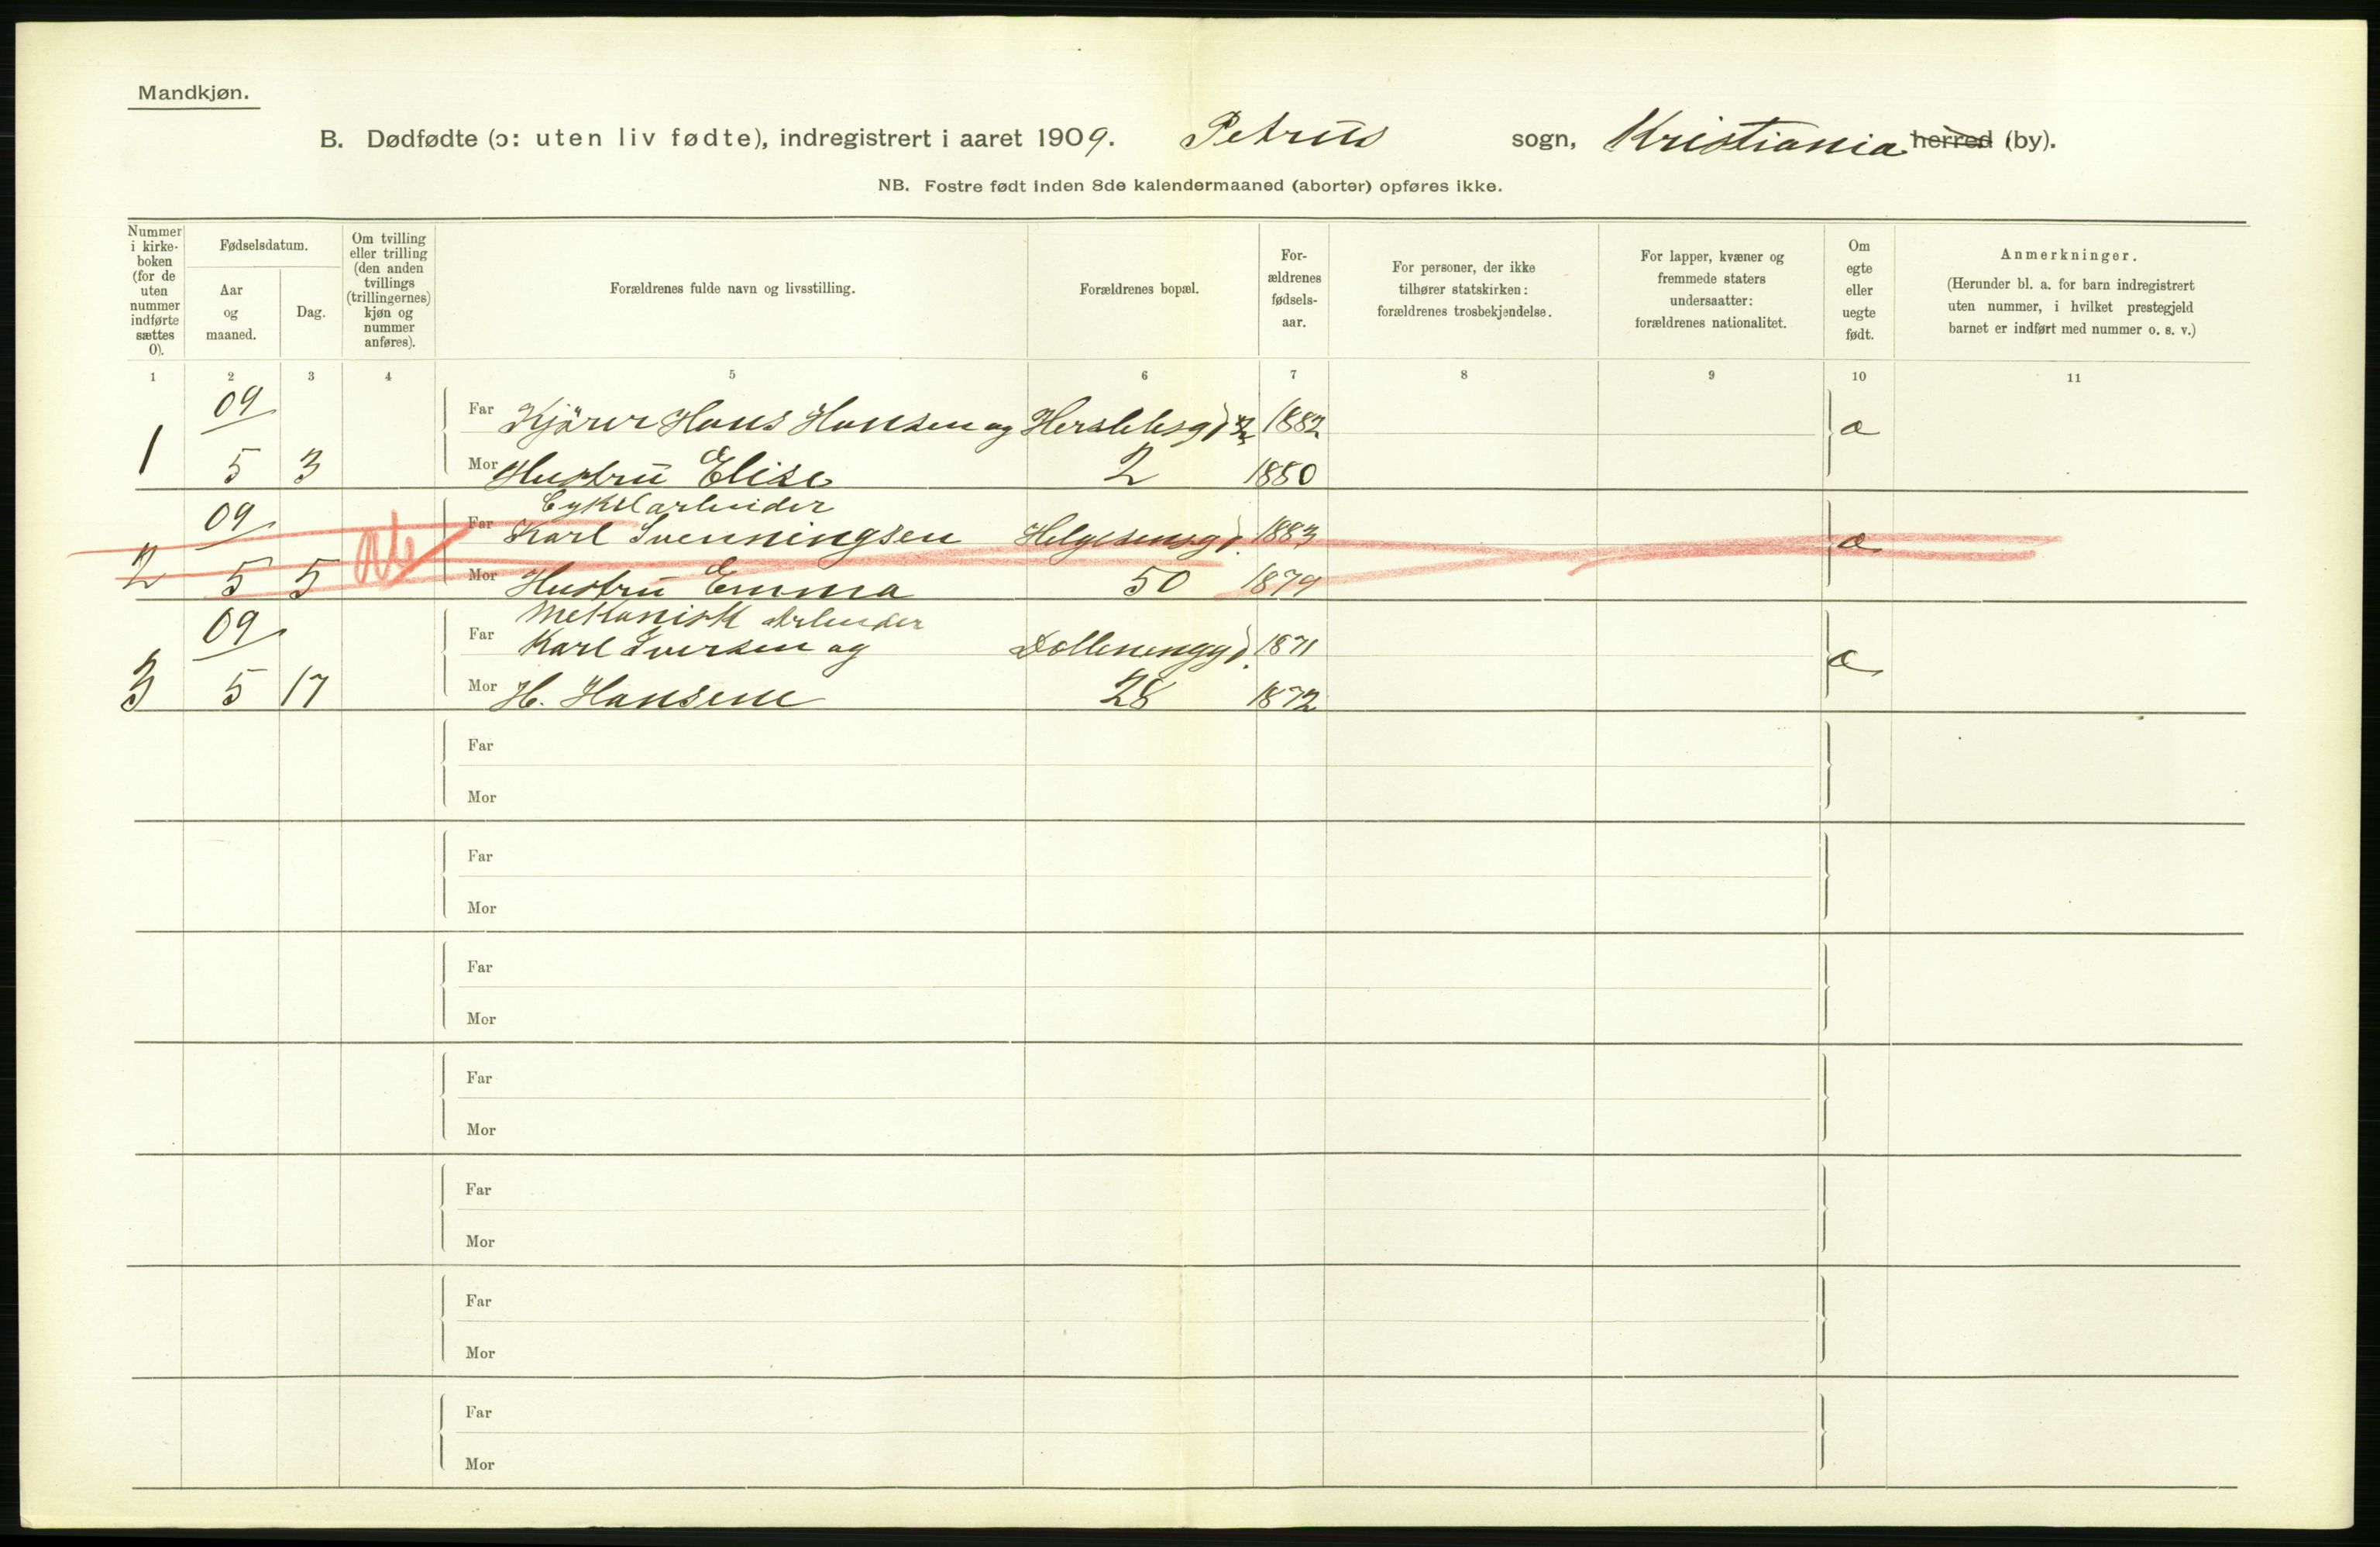 Mandkjøn.
B. Dødfødte (ɔ: uten liv fødte), indregistrert i aaret 1909. Petrus sogn, Kristiania herred (by).
NB. Fostre født inden 8de kalendermaaned (aborter) opføres ikke.
Nummer i kirke-boken (for de uten nummer indførte sættes 0).
Fødselsdatum.
Aar og maaned.
Dag.
Om tvilling eller trilling (den anden tvillings (trillingernes) kjøn og nummer anføres).
Forældrenes fulde navn og livsstilling.
Forældrenes bopæl.
For-ældrenes fødsels-aar.
For personer, der ikke tilhører statskirken: forældrenes trosbekjendelse.
For lapper, kvæner og fremmede staters undersaatter: forældrenes nationalitet.
Om egte eller uegte født.
Anmerkninger.
(Herunder bl. a. for barn indregistrert uten nummer, i hvilket prestegjeld barnet er indført med nummer o. s. v.)
1 2 3 4 5 6 7 8 9 10 11
09
Far Kjører Hans Hansen og Herslebsgd 1882
1 5 3 Mor Hustru Elise 2 1880
Cykelarbeider
09 Far Karl Svenningsen Helgesensgd. 1883
2 5 5 Mor Hustru Emma 50 1879
Mekanisk Arbeider
09 Far Karl Iversen og 1871
3 5 17 Mor H. Hansene 28 1872
Far
Mor
Far
Mor
Far
Mor
Far
Mor
Far
Mor
Far
Mor
Far
Mor